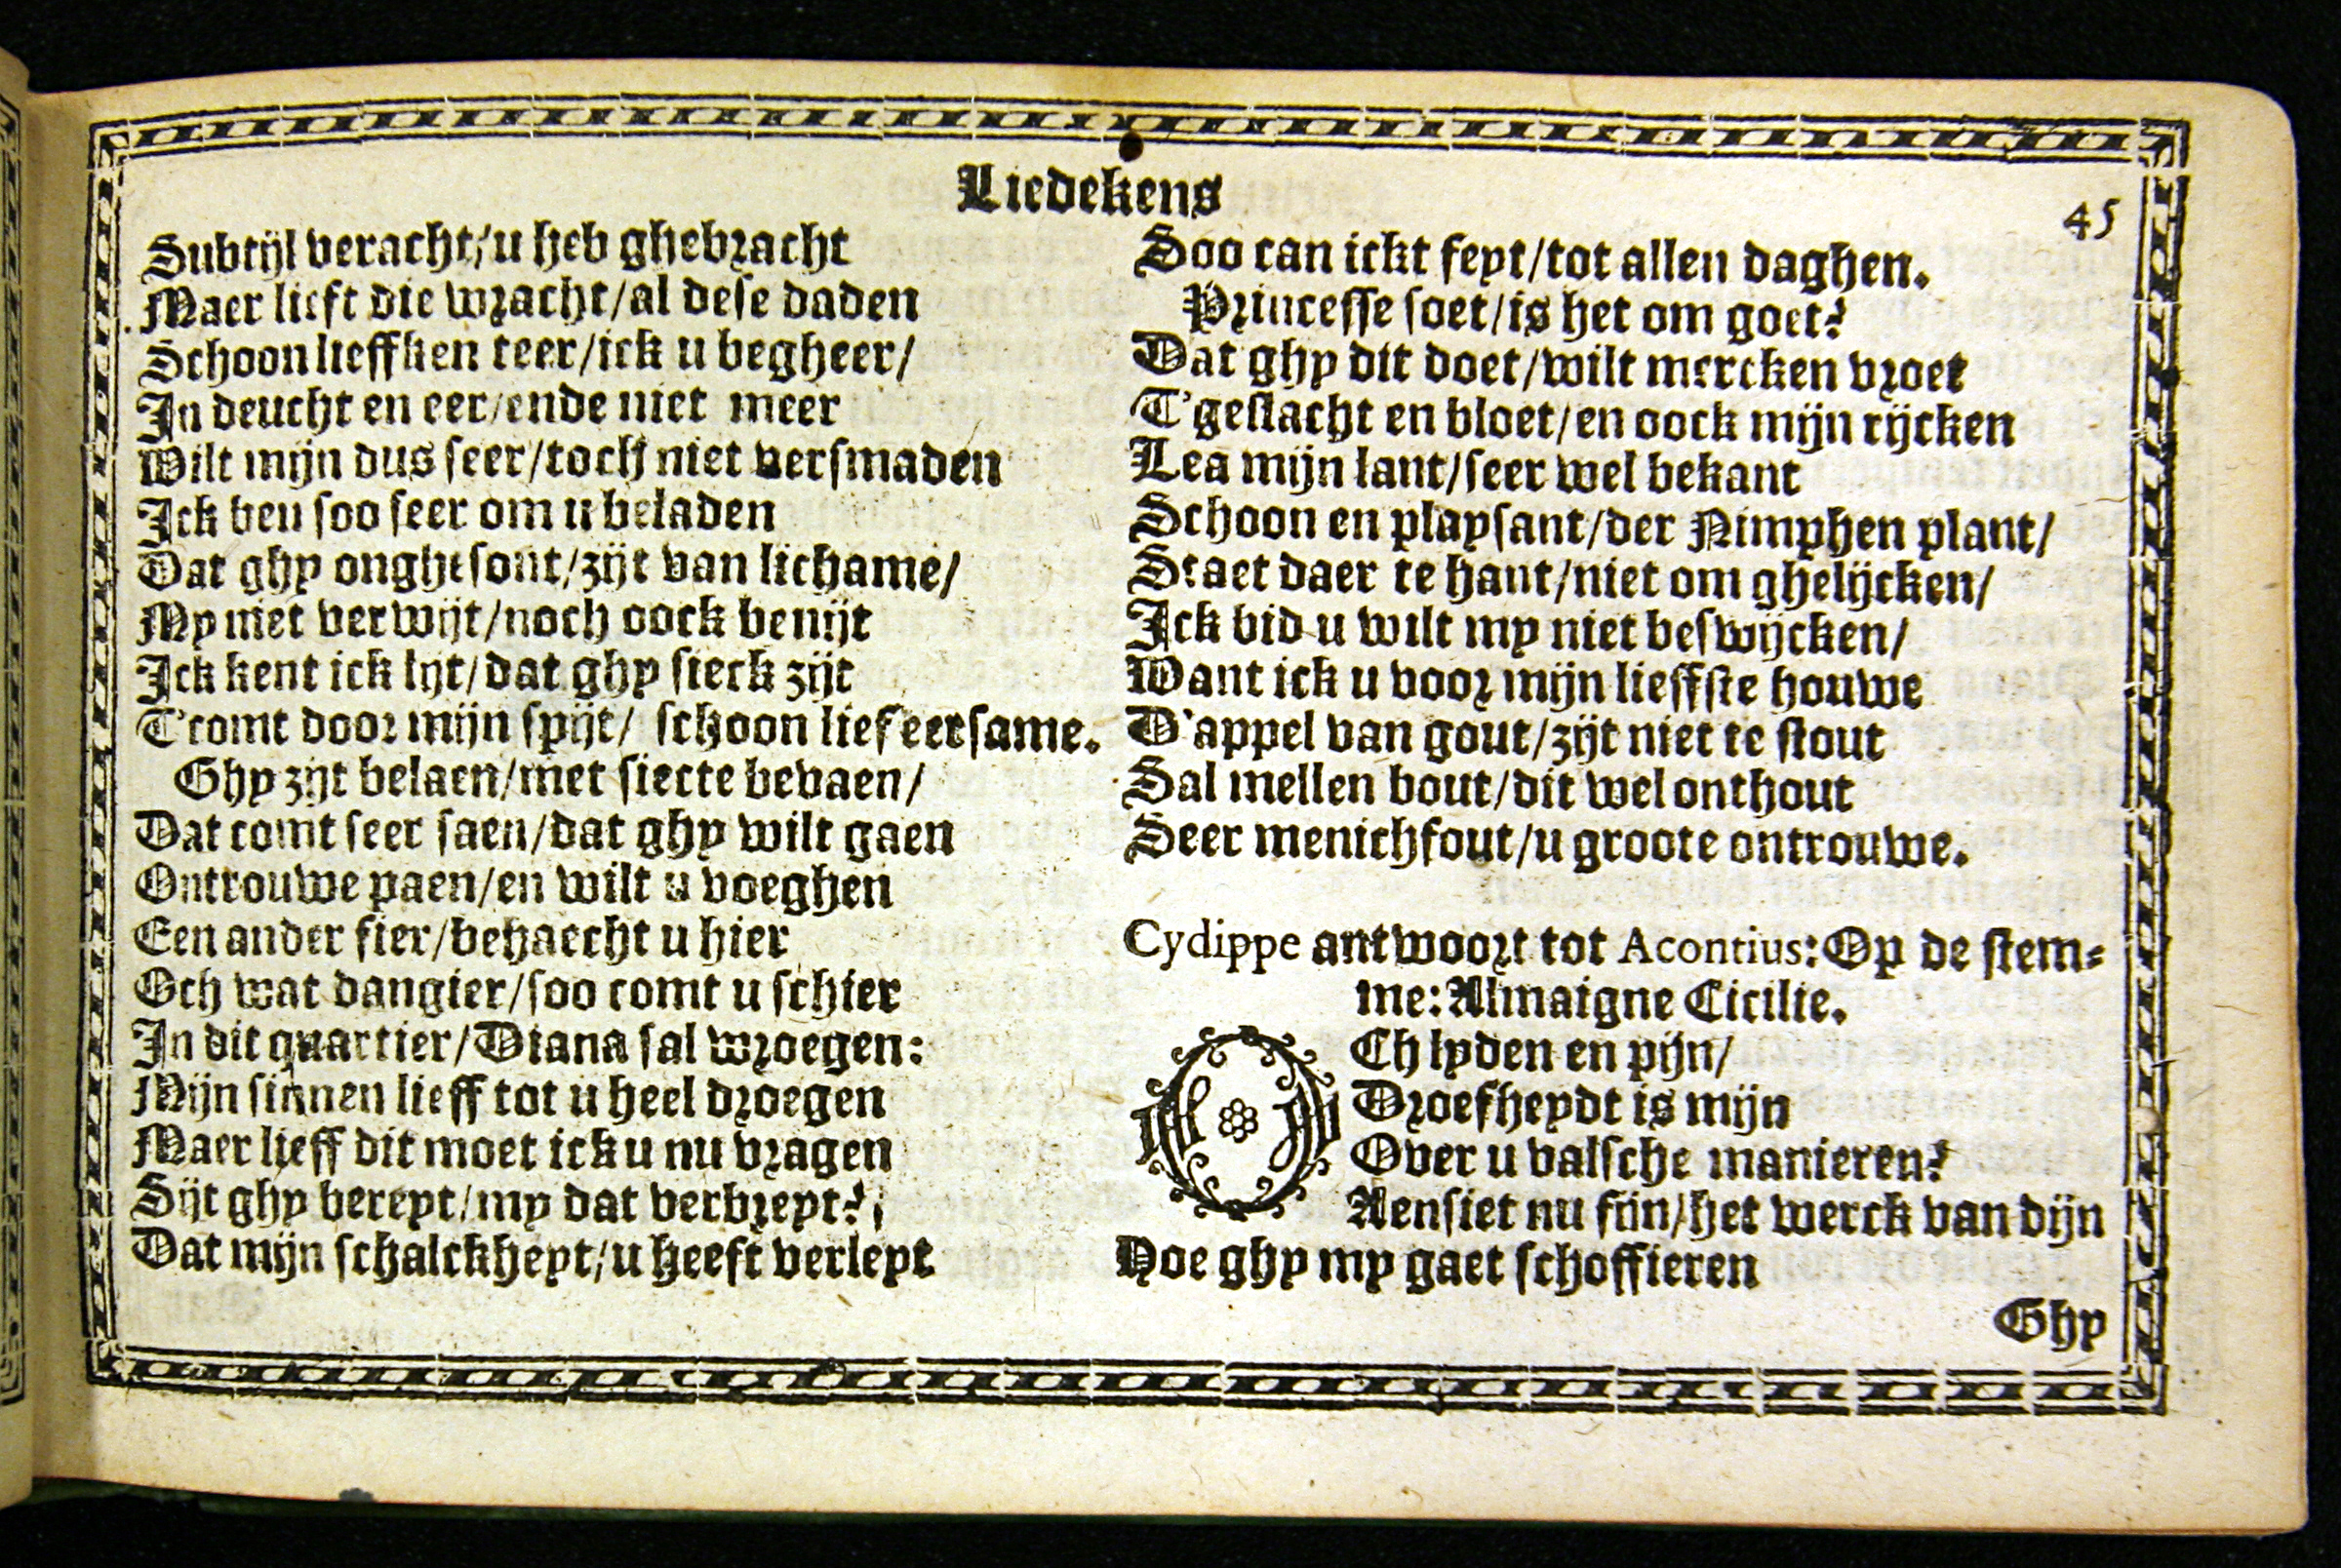 Liedekens
45
Subtijl veracht/u heb ghebracht
Maer lieft die wracht/al dese daden
Schoon lieffken teer/ick u begheer/
In deucht en eer/ende niet meer
Wilt mijn dus seer/toch niet versmaden
Ick ben soo seer om u beladen
Dat ghy onghesont/zijt van lichame/
My niet verwijt/noch oock benijt
Ick kent ick lijt/dat ghy sieck zijt
T'comt door mijn spijt/ schoon lief eersame.
Ghy zijt belaen/met siecte bevaen/
Dat comt seer saen/dat ghy wilt gaen
Ontrouwe paen/en wilt u voeghen
Een ander fier/behaecht u hier
Och wat dangier/soo comt u schier
In dit quartier/Diana sal wroegen:
Mijn sinnen lieff tot u heel droegen
Maer lieff dit moet ick u nu vragen
Sijt ghy bereyt/my dat verbreyt?
Dat mijn schalckheyt/u heeft verleyt
Soo can ickt feyt/tot allen daghen.
Princesse soet/is het om goet?
Dat ghy dit doet/wilt mercken vroet
T'geslacht en bloet/en oock mijn rijcken
Lea mijn lant/seer wel bekant
Schoon en playsant/der Nimphen plant/
Staet daer te hant/niet om ghelijcken/
Ick bid u wilt my niet beswijcken/
Want ick u voor mijn lieffste houwe
D'appel van gout/zijt niet te stout
Sal mellen bout/dit wel onthout
Seer menichfout/u groote ontrouwe.
Cydippe antwoort tot Acontius: Op de stem-
me: Almaigne Cicilie.
OCh lyden en pijn/
Droefheydt is mijn
Over u valsche manieren?
Aensiet nu fijn/het werck van dijn
Hoe ghy my gaet schoffieren
Ghy